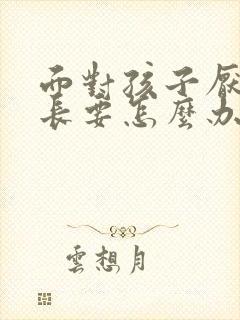 而對孩子厭
長要怎麼办
雲想月